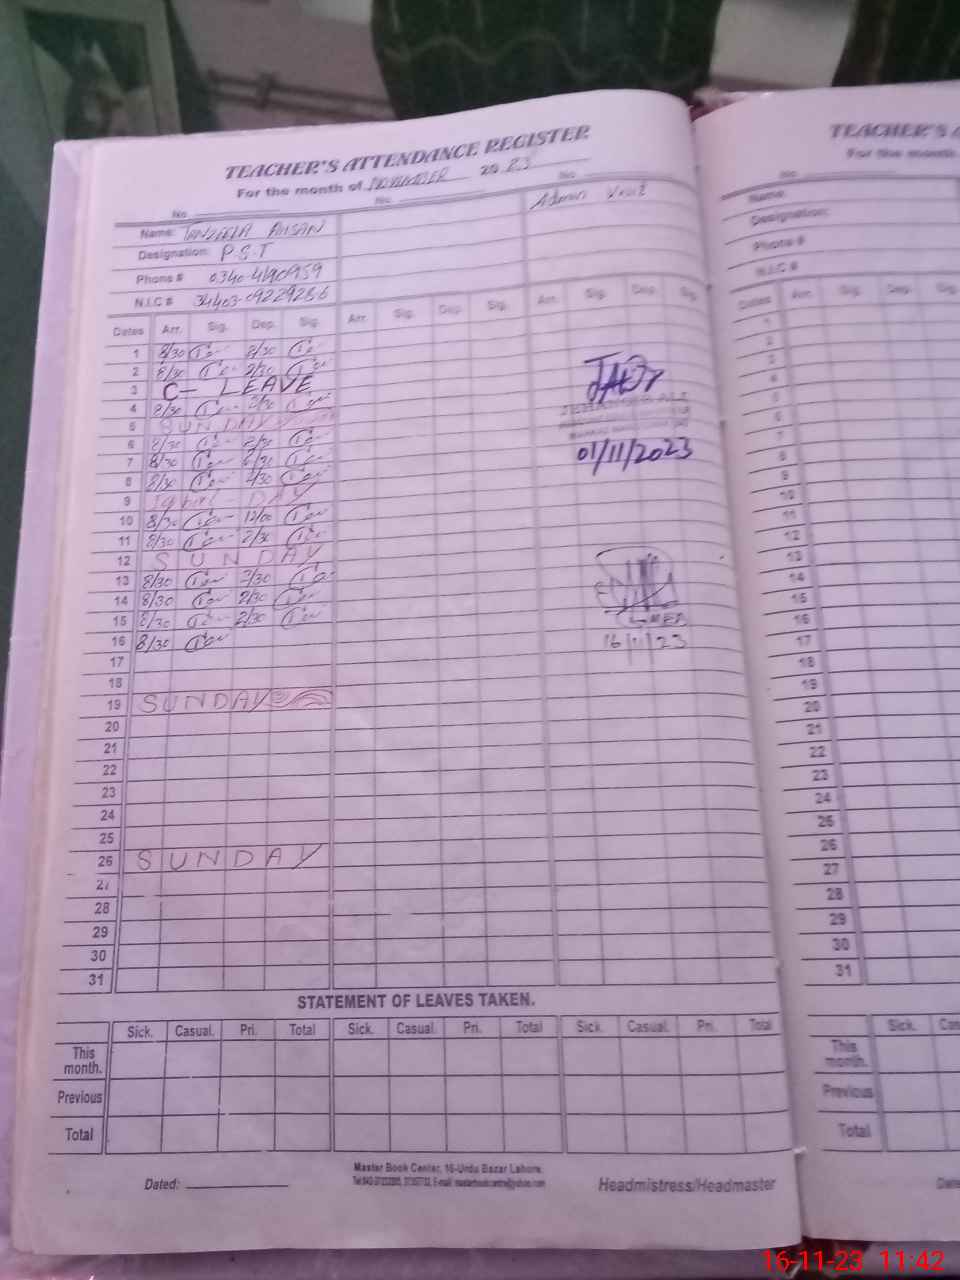 TEACHER'S ATTENDANCE REGISTER
For the month of NOVEMBER 2023
No. No. No.
Name: TANZEELA AHSAN Admin Visit
Designation: P.S.T
Phone #
N.I.C #
Dates Arr. Sig. Dep. Sig. Arr. Sig. Dep. Sig. Arr. Sig. Dep. Sig.
1 8/30 2/30
2 8/30 2/30
3 C- LEAVE
4 8/30 2/30
5 SUNDAY
6 8/30 2/30
7 8/30
8 8/30
9 Iqbal - DAY
10 8/30 12/00
11 8/30 2/30
12 SUNDAY
13 8/30 2/30
14 8/30 2/30
15 8/30 2/30
16 8/30
17
18
19 SUNDAY
20
21
22
23
24
25
26 SUNDAY
27
28
29
30
31
01/11/2023
16/11/23
STATEMENT OF LEAVES TAKEN.
Sick. Casual. Pri. Total Sick. Casual. Pri. Total Sick. Casual. Pri. Total
This month.
Previous
Total
Master Book Center, 16-Urdu Bazar Lahore.
Dated: Headmistress/Headmaster
TEACHER'S
For the month
No.
Name:
Designation:
Phone #
N.I.C #
Dates Arr. Sig. Dep. Sig.
1
2
3
4
5
6
7
8
9
10
11
12
13
14
15
16
17
18
19
20
21
22
23
24
25
26
27
28
29
30
31
Sick.
This month.
Previous
Total
16-11-23 11:42